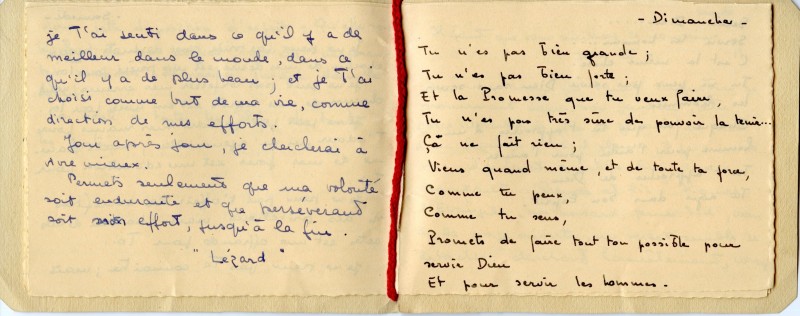 je T'ai senti dans ce qu'il y a de
meilleur dans le monde, dans ce
qu'il y a de plus beau ; et je T'ai
choisi comme but de ma vie, comme
direction de mes efforts.
Jour après jour, je chercherai à
vivre mieux.
Permets seulement que ma volonté
soit endurante et que persévérant
soit mon effort, jusqu'à la fin.
"Lézard"
- Dimanche -
Tu n'es pas bien grande ;
Tu n'es pas bien forte ;
Et la Promesse que tu veux faire,
Tu n'es pas très sûre de pouvoir la tenir...
Çà ne fait rien ;
Viens quand même, et de toute ta force,
Comme tu peux,
Comme tu sens,
Promets de faire tout ton possible pour
servir Dieu
Et pour servir les hommes.